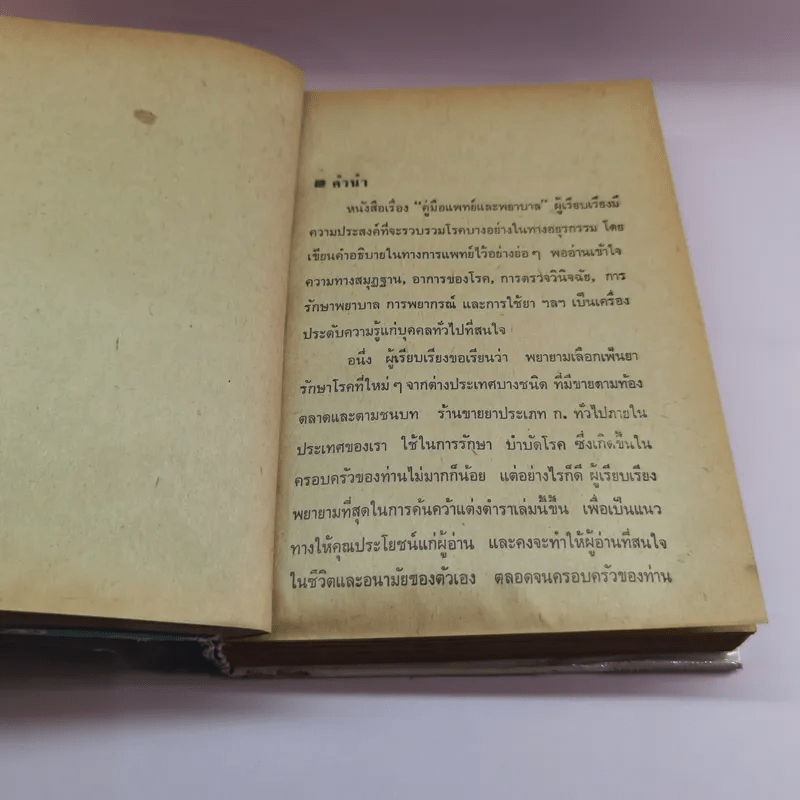 คำนำ
หนังสือเรื่อง "คู่มือแพทย์และพยาบาล" ผู้เรียบเรียงมี
ความประสงค์ที่จะรวบรวมโรคบางอย่างในทางอายุรกรรม โดย
เขียนคำอธิบายในทางการแพทย์ไว้อย่างย่อ ๆ พออ่านเข้าใจ
ความทางสมุฏฐาน, อาการของโรค, การตรวจวินิจฉัย, การ
รักษาพยาบาล การพยากรณ์ และการใช้ยา ฯลฯ เป็นเครื่อง
ประดับความรู้แก่บุคคลทั่วไปที่สนใจ
อนึ่ง ผู้เรียบเรียงขอเรียนว่า พยายามเลือกเฟ้นยา
รักษาโรคที่ใหม่ ๆ จากต่างประเทศบางชนิด ที่มีขายตามท้อง
ตลาดและตามชนบท ร้านขายยาประเภท ก. ทั่วไปภายใน
ประเทศของเรา ใช้ในการรักษา บำบัดโรค ซึ่งเกิดขึ้นใน
ครอบครัวของท่านไม่มากก็น้อย แต่อย่างไรก็ดี ผู้เรียบเรียง
พยายามที่สุดในการค้นคว้าแต่งตำราเล่มนี้ขึ้น เพื่อเป็นแนว
ทางให้คุณประโยชน์แก่ผู้อ่าน และคงจะทำให้ผู้อ่านที่สนใจ
ในชีวิตและอนามัยของตัวเอง ตลอดจนครอบครัวของท่าน